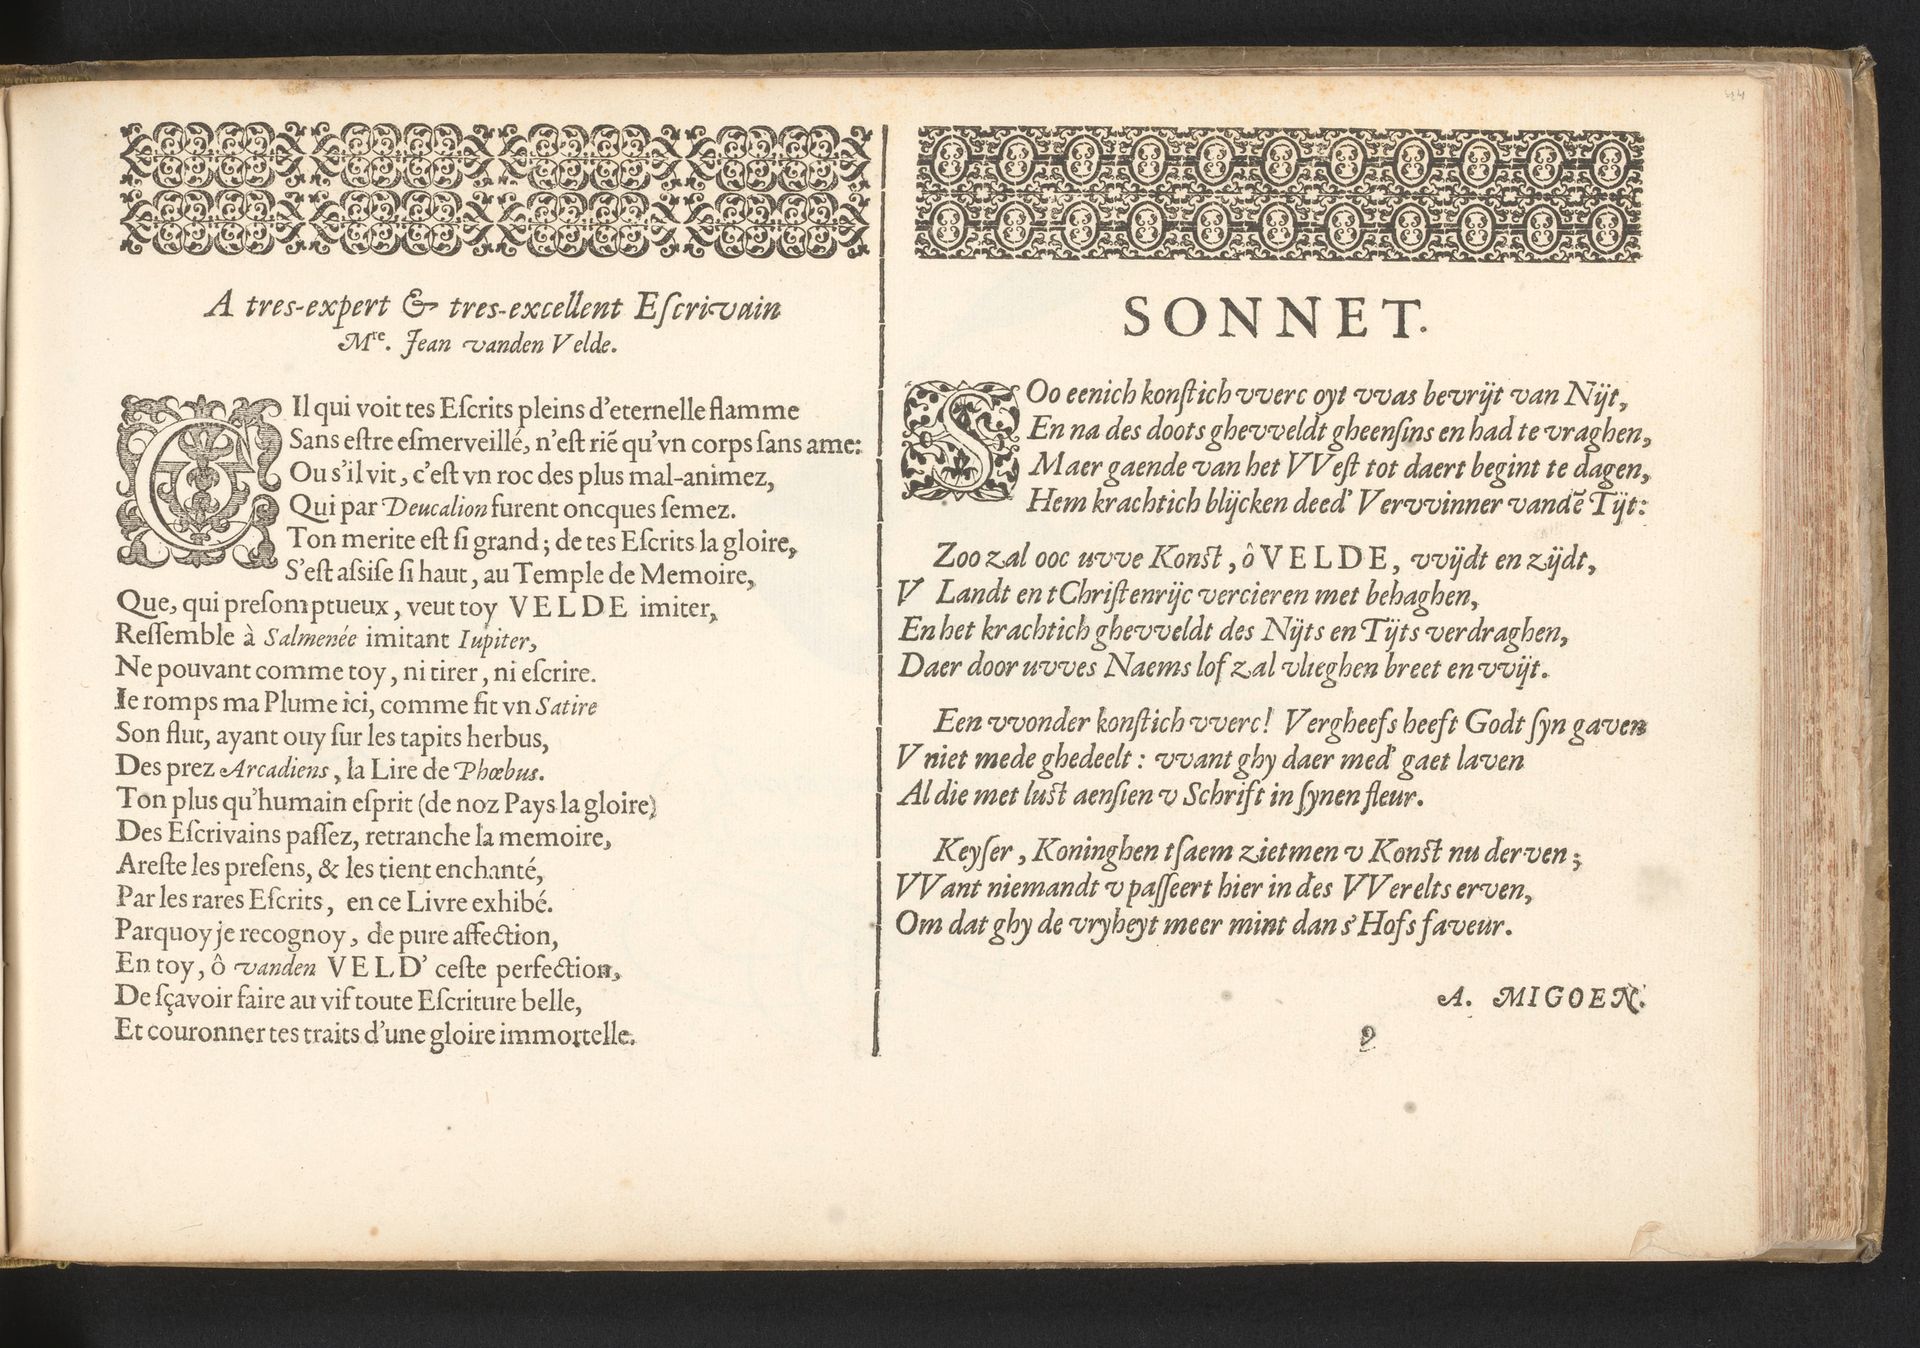 44
A tres-expert & tres-excellent Eſcrivain
Mre. Jean vanden Velde.
CIl qui voit tes Eſcrits pleins d'eternelle flamme
Sans eſtre eſmerveillé, n'eſt riẽ qu'vn corps ſans ame:
Ou s'il vit, c'eſt vn roc des plus mal-animez,
Qui par Deucalion furent oncques ſemez.
Ton merite eſt ſi grand; de tes Eſcrits la gloire,
S'eſt aſsiſe ſi haut, au Temple de Memoire,
Que, qui preſomptueux, veut toy VELDE imiter,
Reſſemble à Salmenée imitant Iupiter,
Ne pouvant comme toy, ni tirer, ni eſcrire.
Ie romps ma Plume ici, comme fit vn Satire
Son flut, ayant ouy ſur les tapits herbus,
Des prez Arcadiens, la Lire de Phœbus.
Ton plus qu'humain eſprit (de noz Pays la gloire)
Des Eſcrivains paſſez, retranche la memoire,
Areſte les preſens, & les tient enchanté,
Par les rares Eſcrits, en ce Livre exhibé.
Parquoy je recognoy, de pure affection,
En toy, ô vanden VELD' ceſte perfection,
De ſçavoir faire au vif toute Eſcriture belle,
Et couronner tes traits d'une gloire immortelle.
SONNET.
SOo eenich konſtich vverc oyt vvas bevrijt van Nijt,
En na des doots ghevveldt gheenſins en had te vraghen,
Maer gaende van het VVeſt tot daert begint te dagen,
Hem krachtich blijcken deed' Vervvinner vandẽ Tijt:
Zoo zal ooc uvve Konſt, ô VELDE, vvijdt en zijdt,
V Landt en tChriſtenrijc vercieren met behaghen,
En het krachtich ghevveldt des Nijts en Tijts verdraghen,
Daer door uvves Naems lof zal vlieghen breet en vvijt.
Een vvonder konſtich vverc! Vergheefs heeft Godt ſyn gaven
V niet mede ghedeelt: vvant ghy daer med' gaet laven
Al die met luſt aenſien v Schrift in ſynen fleur.
Keyſer, Koninghen tſaem zietmen v Konſt nu derven;
VVant niemandt v paſſeert hier in des VVerelts erven,
Om dat ghy de vryheyt meer mint dan s' Hofs faveur.
A. MIGOEN.